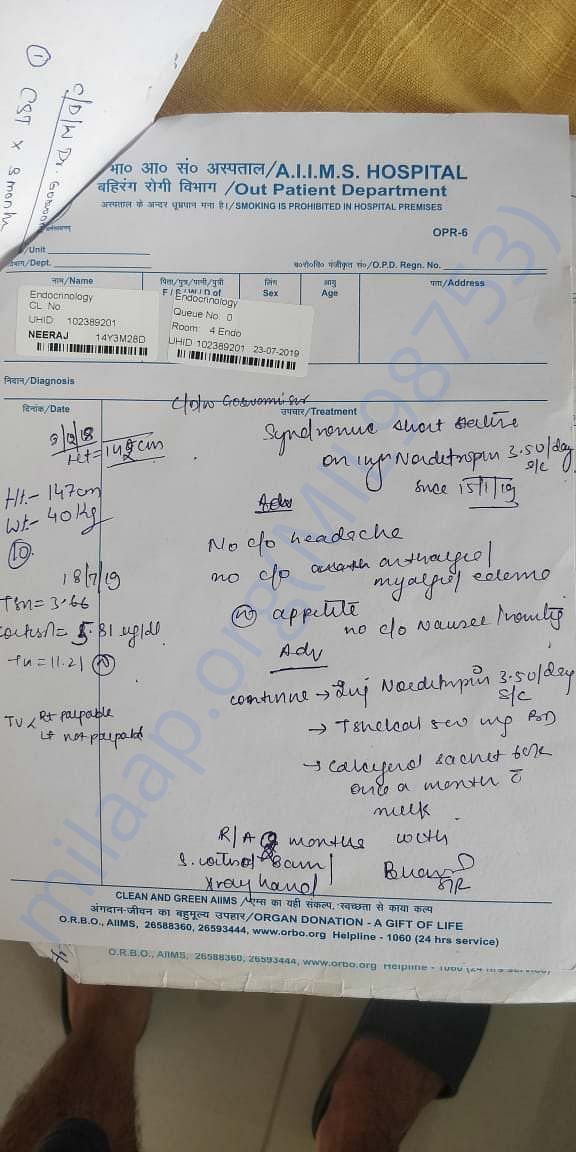 c/D/W Dr. Goswami
① CST x 3 months
भा० आ० सं० अस्पताल/A.I.I.M.S. HOSPITAL
बहिरंग रोगी विभाग /Out Patient Department
अस्पताल के अन्दर धूम्रपान मना है।/SMOKING IS PROHIBITED IN HOSPITAL PREMISES
OPR-6
/Unit
विभाग/Dept.
ब०रो०वि० पंजीकृत सं०/O.P.D. Regn. No.
नाम/Name
पिता/पुत्र/पत्नी/पुत्री
लिंग
Sex
आयु
Age
पता/Address
Endocrinology
CL. No
UHID: 102389201
NEERAJ 14Y3M28D
Endocrinology
Queue No. 0
Room: 4 Endo
UHID 102389201 23-07-2019
निदान/Diagnosis
दिनांक/Date
उपचार/Treatment
c/D/W Goswami Sir
Syndromic short stature
on inj Norditropin 3.50/day
s/c
since 15/1/19
Ht = 142cm
Ht.- 147cm
Wt.- 40kg
Adv
No c/o headache
no c/o arthalgia/
myalgia/edema
18/7/19
TSH = 3.66
cortisol = 5.81 ug/dl
T4 = 11.21 (N)
(N) appetite
no c/o Nausea/vomiting
Adv
continue → Inj Norditropin 3.50/day
s/c
→ Tshelcal 500 mg BD
TV < Rt palpable
Lt not palpable
→ calcyerol sachet 60k
once a month c̄
milk
R/A months with
S. cortisol 8am/
Xray hand
SR
CLEAN AND GREEN AIIMS / एम्स का यही संकल्प, स्वच्छता से काया कल्प
अंगदान-जीवन का बहुमूल्य उपहार/ORGAN DONATION - A GIFT OF LIFE
O.R.B.O., AIIMS, 26588360, 26593444, www.orbo.org Helpline - 1060 (24 hrs service)
O.R.B.O., AIIMS, 26588360, 26593444, www.orbo.org Helpline - 1060 (24 hrs service)
milaap.org(MIL 98753)